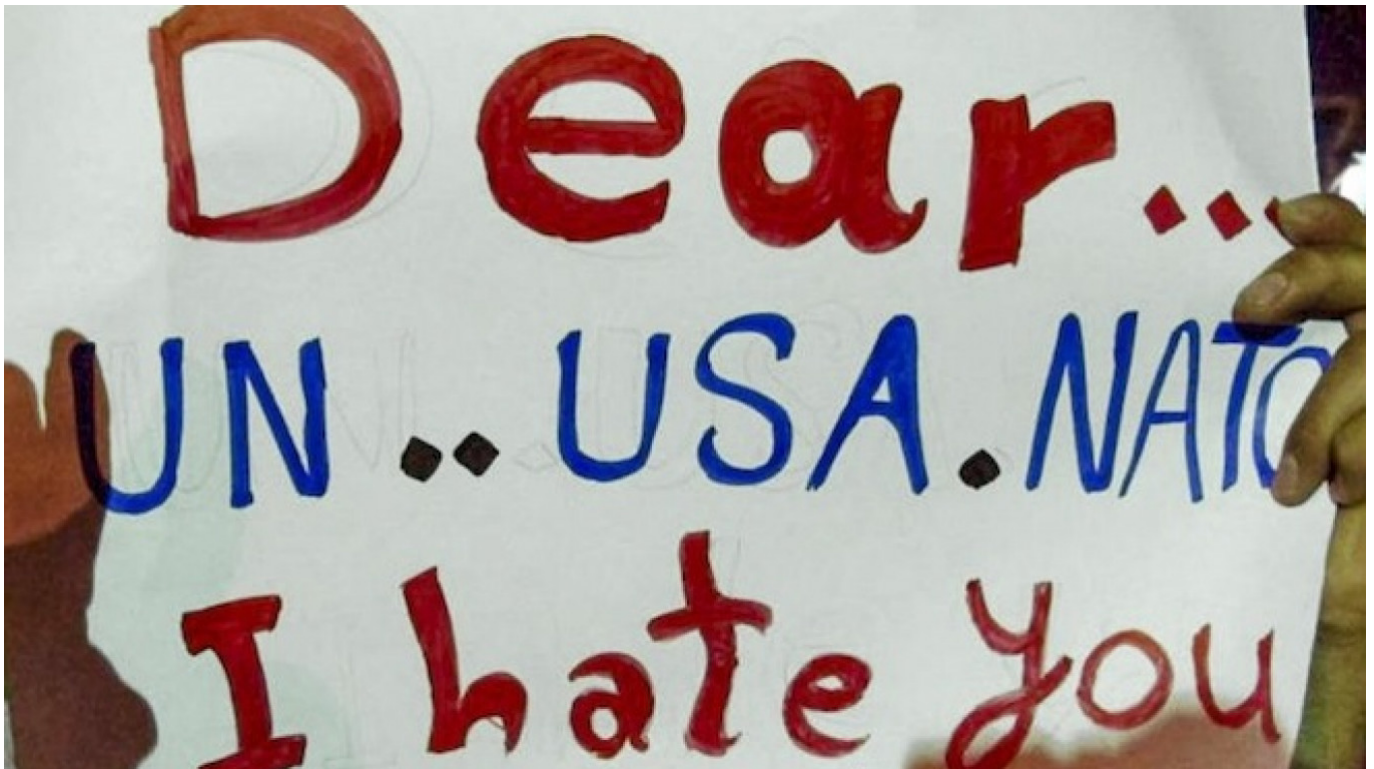 Dear...
UN .. USA . NATO
I hate you